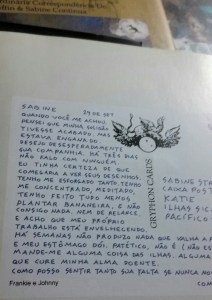 SABINE
23 DE SET
QUANDO VOCÊ ME ACHOU,
PENSEI QUE MINHA SOLIDÃO
TIVESSE ACABADO. MAS
ESTAVA ENGANADO.
DESEJO DESESPERADAMENTE
SUA COMPANHIA. HÁ TRÊS DIAS
NÃO FALO COM NINGUÉM.
EU TINHA CERTEZA DE QUE
COMEÇARIA A VER SEUS DESENHOS.
TENHO ME ESFORÇADO TANTO, TENHO
ME CONCENTRADO, MEDITADO,
TENHO FEITO TUDO MENOS
PLANTAR BANANEIRA, E NÃO
CONSIGO NADA. NEM DE RELANCE.
E ACHO QUE MEU PRÓPRIO
TRABALHO ESTÁ ENVELHECENDO.
HÁ SEMANAS NÃO PRODUZO NADA QUE VALHA A P
E MEU ESTÔMAGO DÓI. PATÉTICO, NÃO É (NÃO ES
MANDE-ME ALGUMA COISA DAS ILHAS, ALGUMA
QUE CURE MINHA ALMA DOENTE.
COMO POSSO SENTIR TANTO SUA FALTA SE NUNCA NOS
GRYPHON CARDS
SABINE STR
CAIXA POST
KATIE
ILHAS SIC
PACÍFICO
Frankie e Johnny